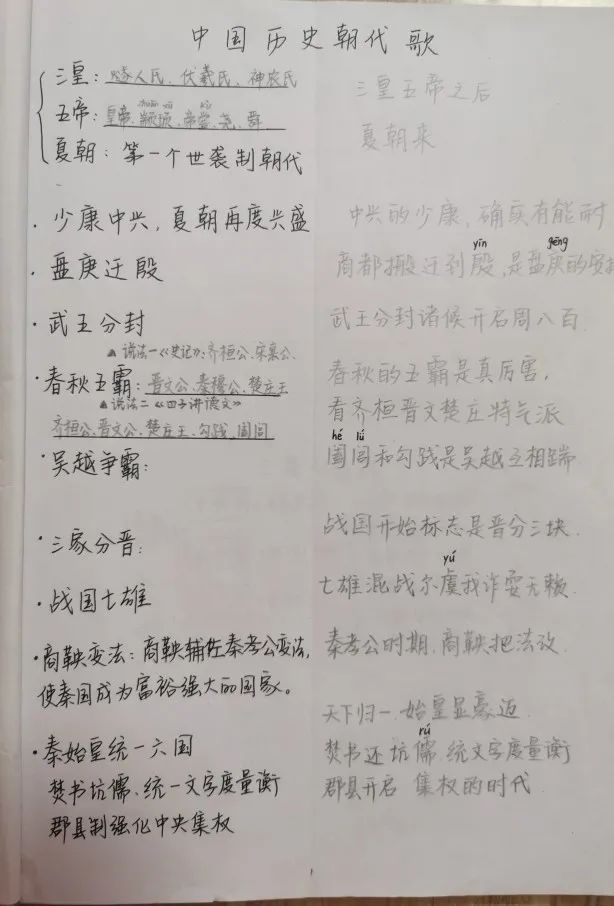 中国历史朝代歌
三皇：燧人氏、伏羲氏、神农氏
五帝：皇帝、颛顼、帝喾、尧、舜
夏朝：第一个世袭制朝代
·少康中兴，夏朝再度兴盛
·盘庚迁殷
·武王分封
▲说法一《史记》：齐桓公、宋襄公、
·春秋五霸：晋文公、秦穆公、楚庄王
▲说法二《四子讲德文》
齐桓公、晋文公、楚庄王、勾践、阖闾
·吴越争霸：
·三家分晋：
·战国七雄
·商鞅变法：商鞅辅佐秦孝公变法，
使秦国成为富裕强大的国家。
·秦始皇统一六国
焚书坑儒、统一文字度量衡
郡县制强化中央集权
三皇五帝之后
夏朝来
中兴的少康，确实有能耐
yīn gēng
商都搬迁到殷，是盘庚的安排
武王分封诸候开启周八百
春秋的五霸是真厉害，
看齐桓晋文楚庄特气派
hé lú
阖闾和勾践是吴越互相踹
战国开始标志是晋分三块
yú
七雄混战尔虞我诈耍无赖
秦孝公时期，商鞅把法改
天下归一始皇显豪迈
rú
焚书还坑儒，统文字度量衡
郡县开启 集权的时代